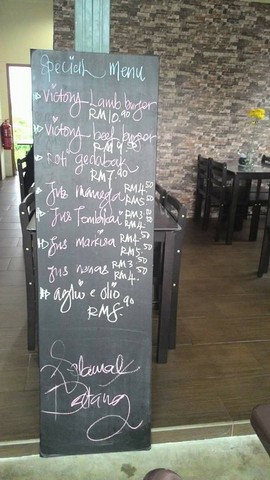 Special Menu
Victory Lamb burger
RM10.90
Victory beef burger
RM9.90
Roti gedabak
RM7.90
Jus mangga RM4.50
RM5.50
Jus Tembikai RM3.50
RM4.50
Jus markisa RM4.50
RM5.50
Jus nanas RM3.50
RM4.50
Aglio e olio
RM8.90
Selamat
Datang